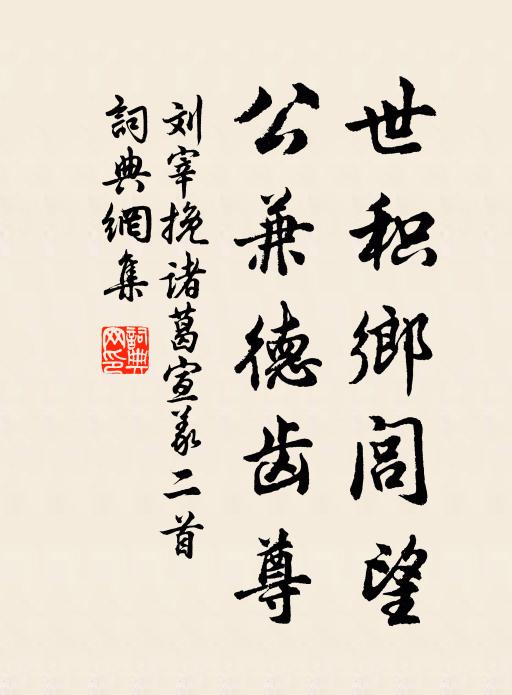 世积鄉闾望
公兼德齿尊
刘宰挽诸葛宣义二首
詞典網集
詞典网印